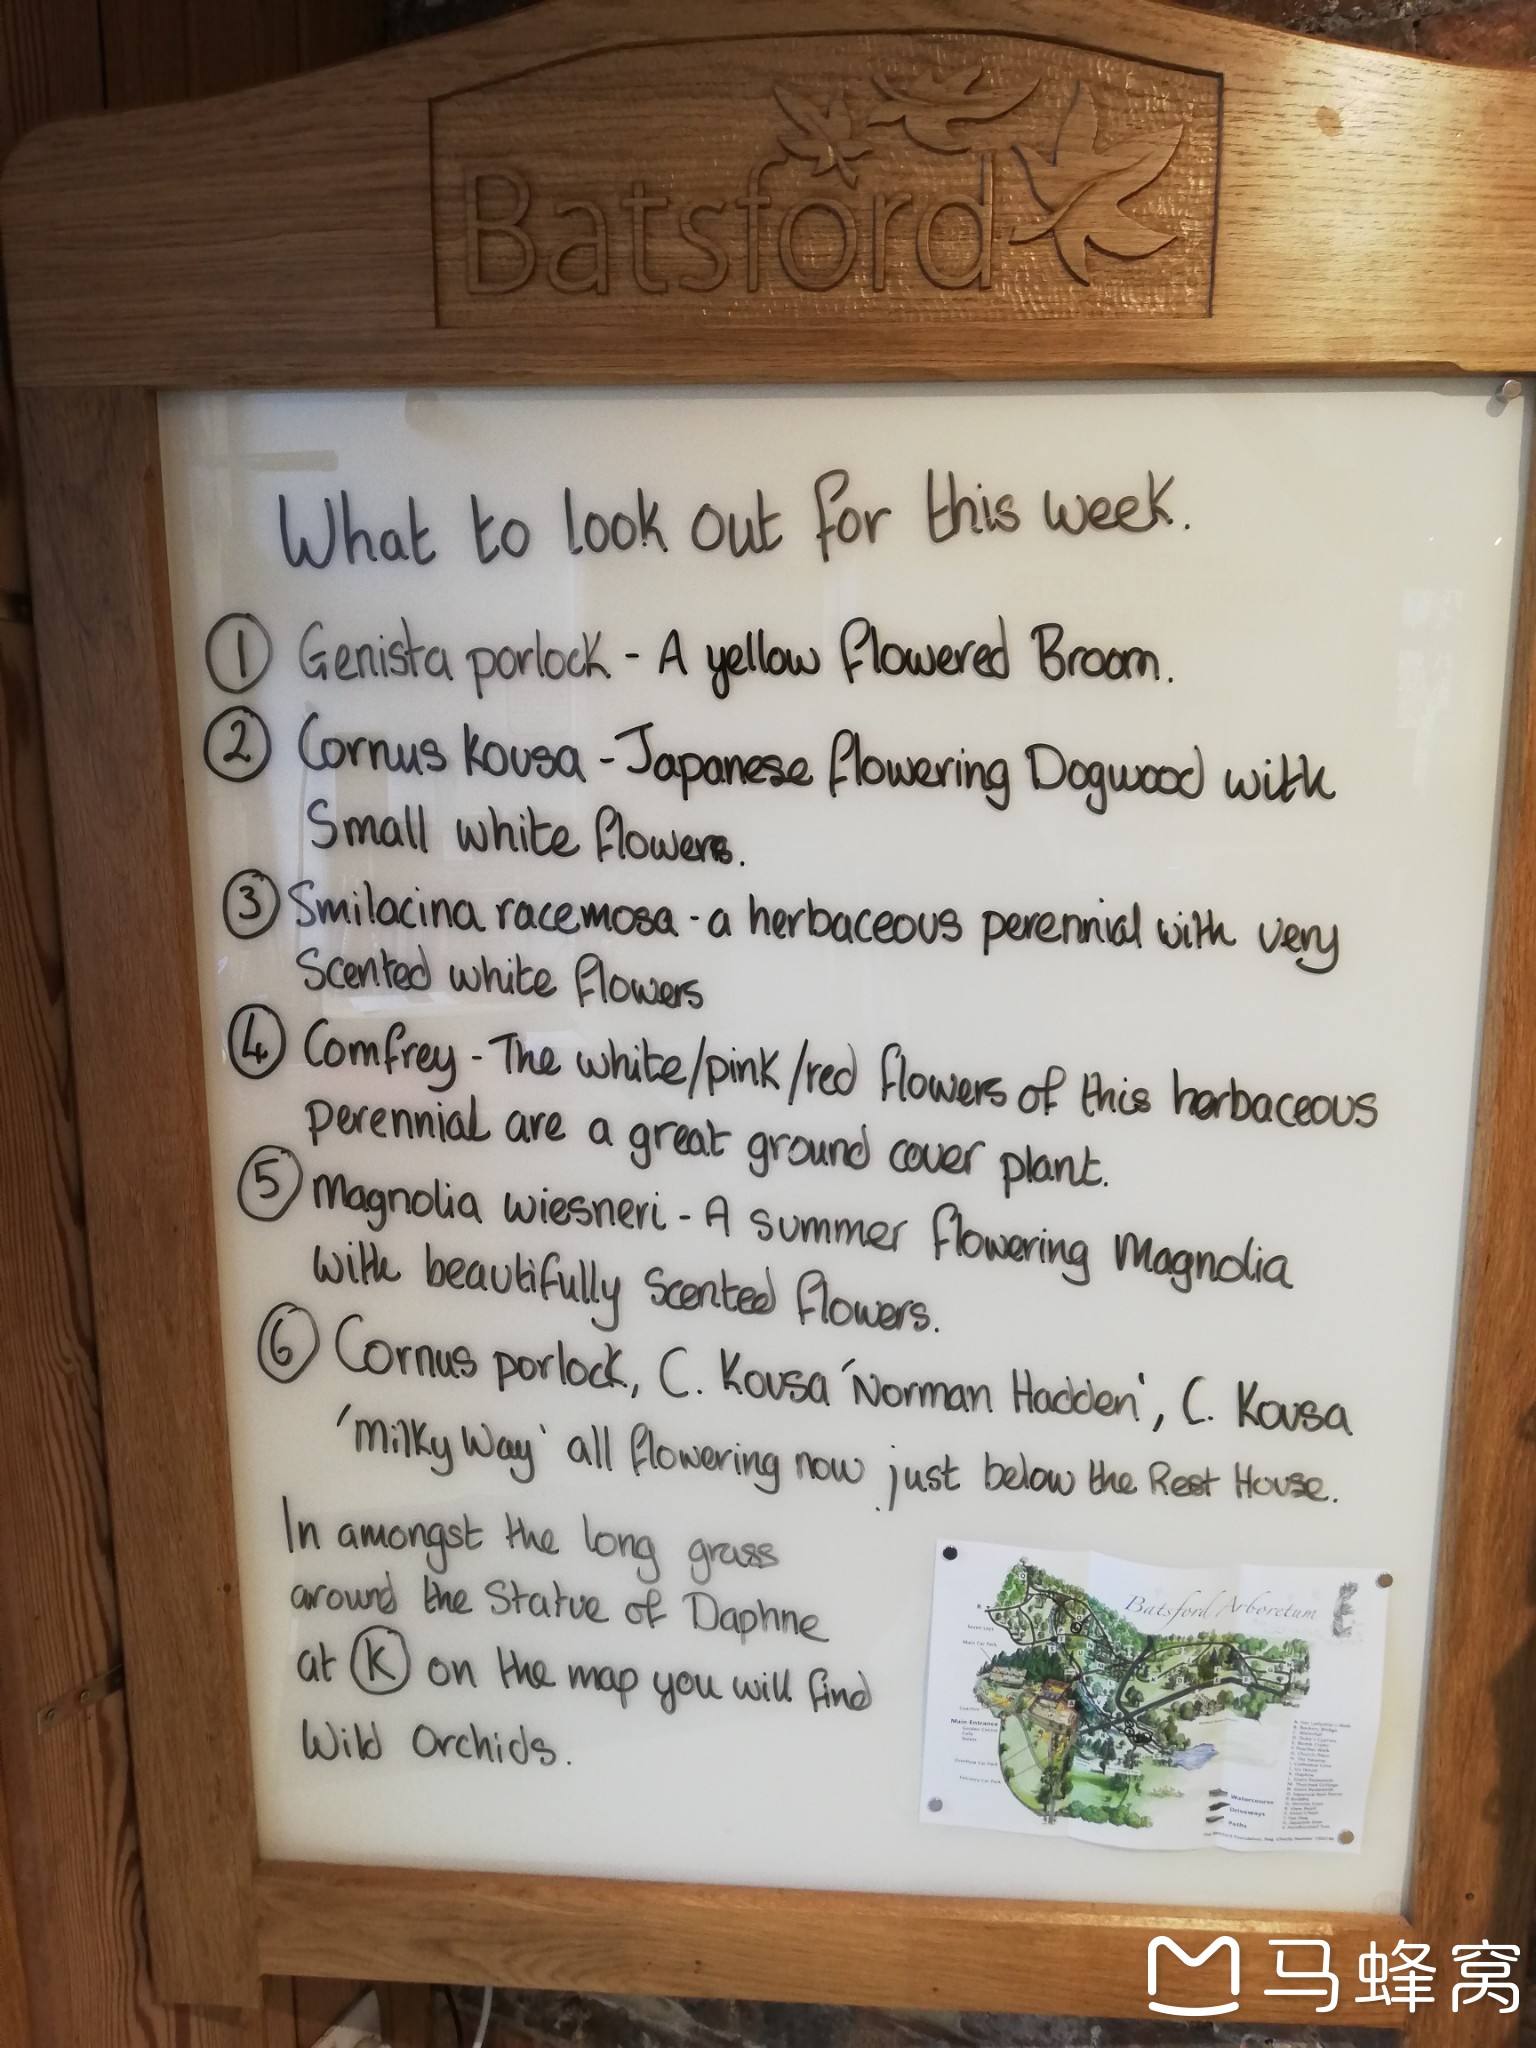 Batsford
What to look out for this week.
① Genista porlock - A yellow flowered Broom.
② Cornus kousa - Japanese flowering Dogwood with
Small white flowers.
③ Smilacina racemosa - a herbaceous perennial with very
Scented white flowers
④ Comfrey - The white/pink/red flowers of this herbaceous
perennial are a great ground cover plant.
⑤ Magnolia wiesneri - A summer flowering Magnolia
with beautifully Scented flowers.
⑥ Cornus porlock, C. Kousa 'Norman Hadden', C. Kousa
'Milky Way' all flowering now just below the Rest House.
In amongst the long grass
around the Statue of Daphne
at Ⓚ on the map you will find
Wild Orchids.
Batsford Arboretum
Main Car Park
Main Entrance
Garden Centre
Cafe
Overflow Car Park
Watercourse
Driveways
Paths
马蜂窝